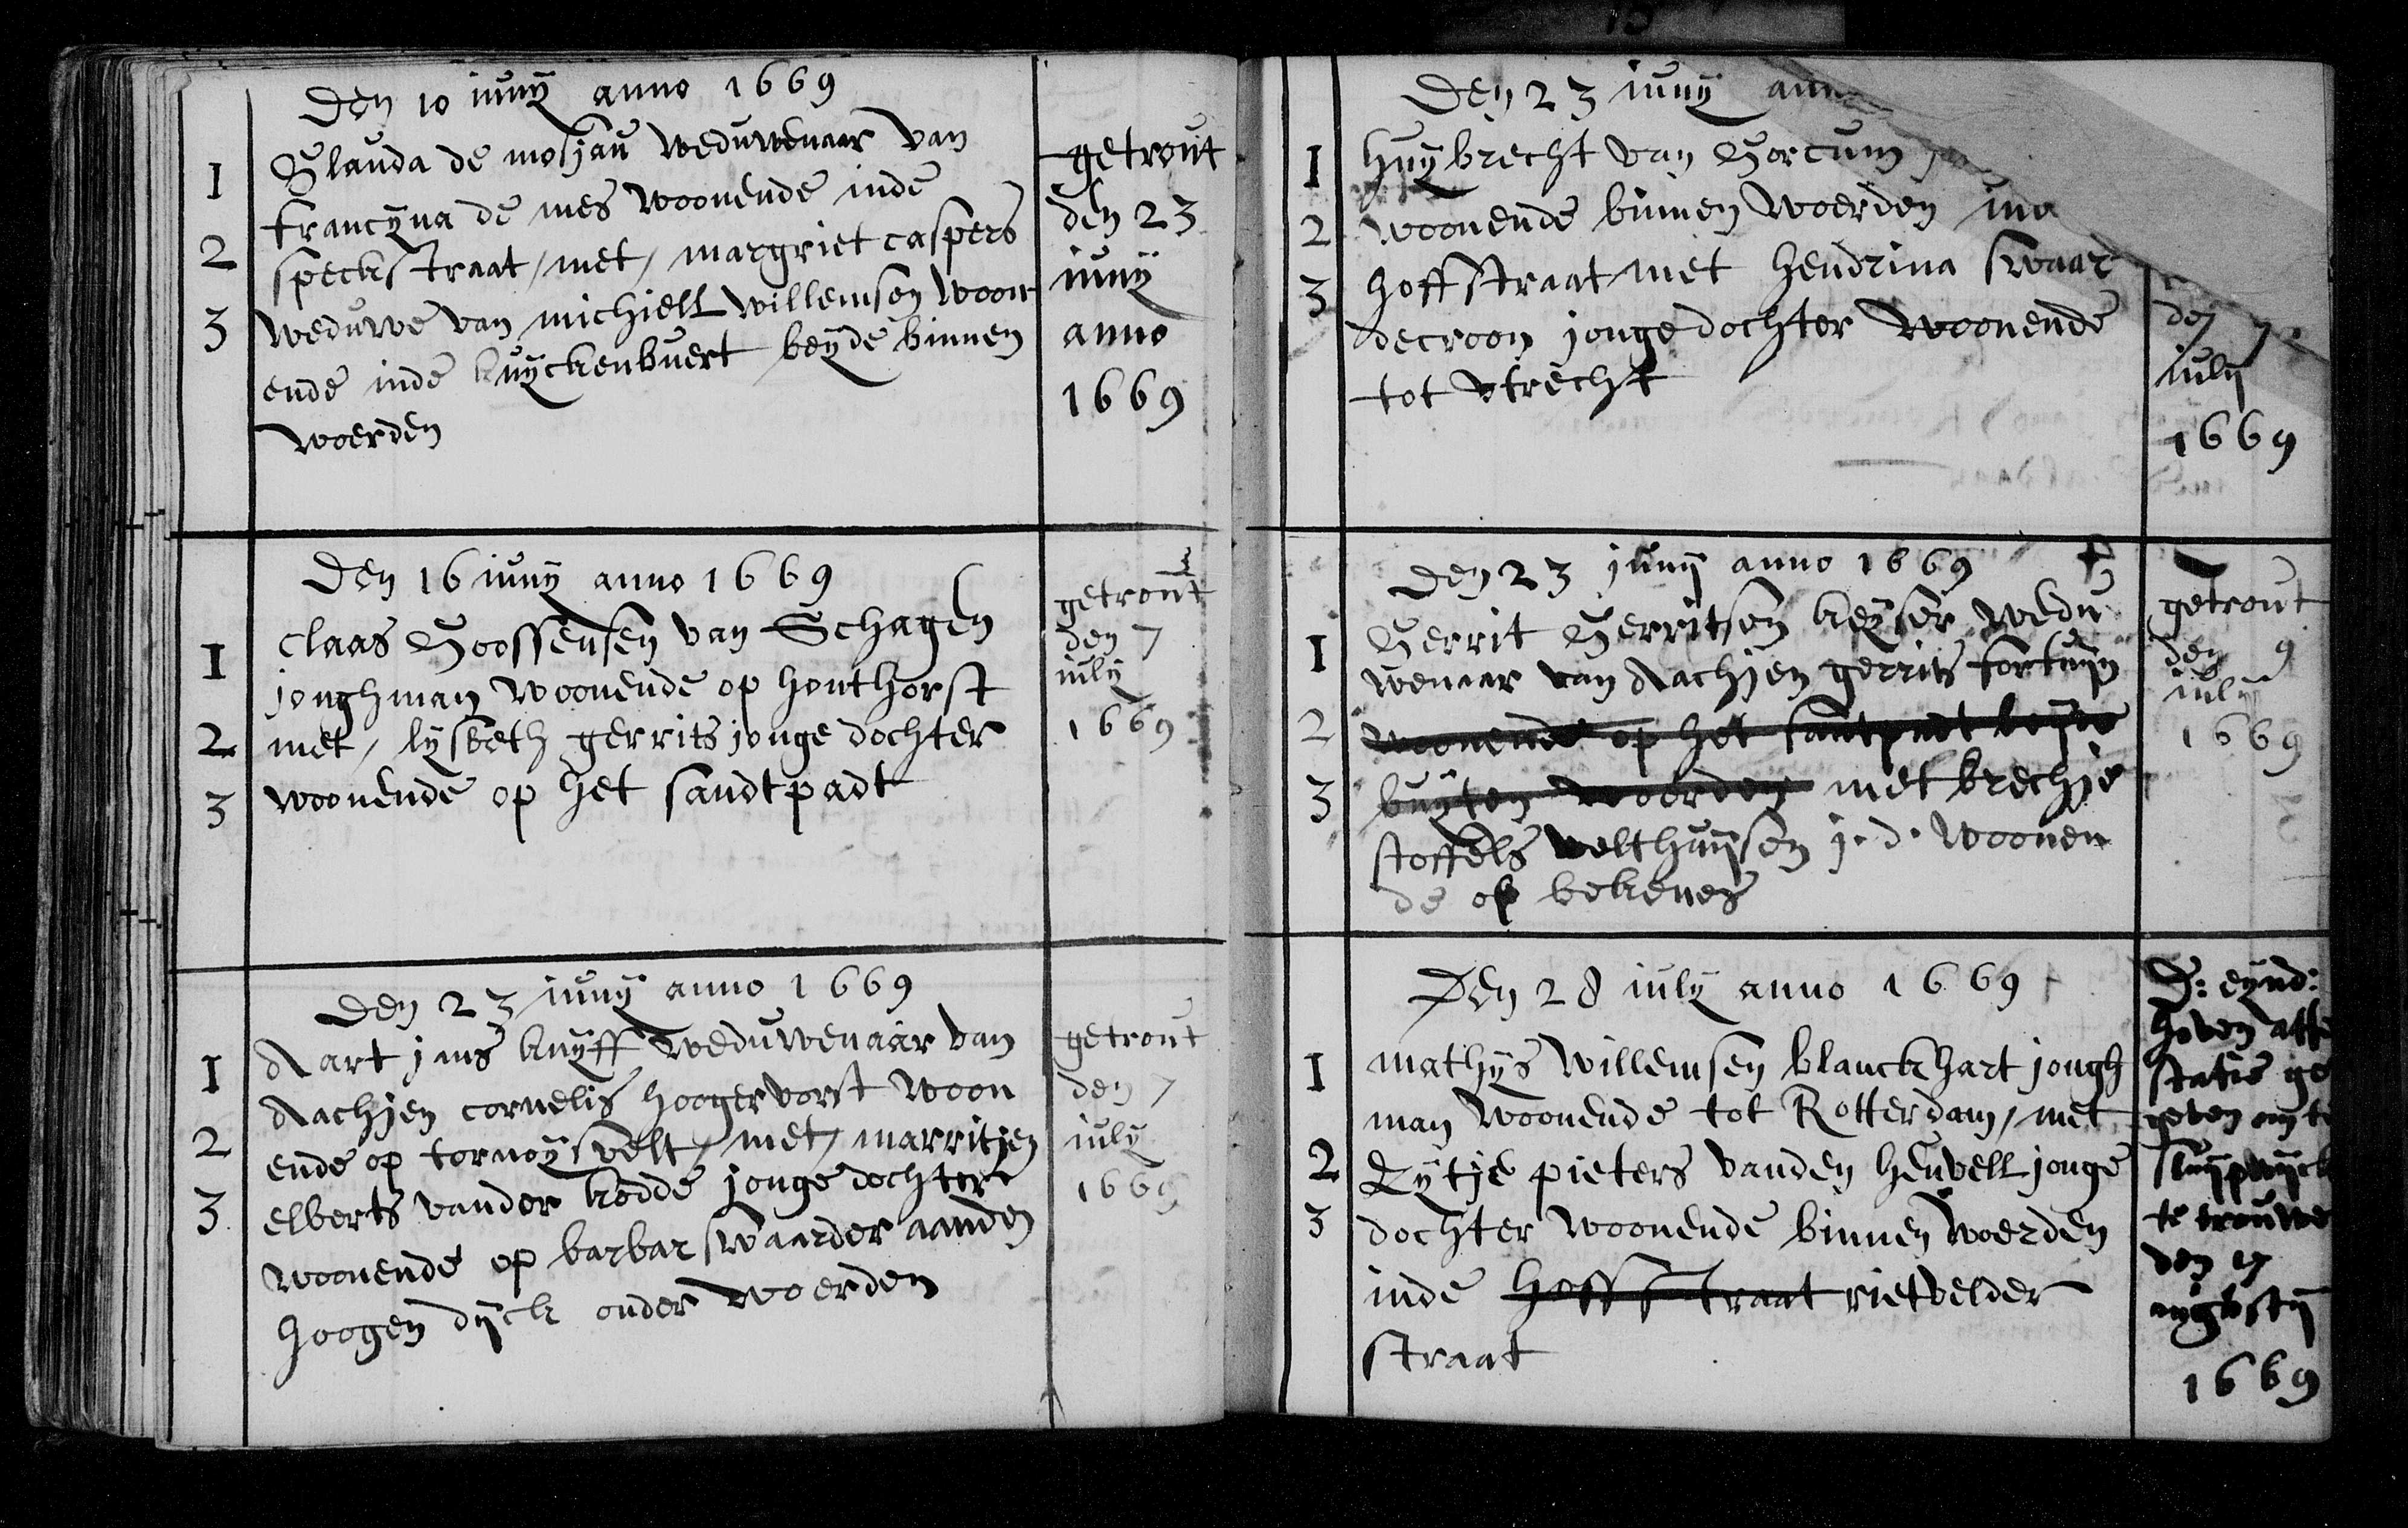 Den 10 iunÿ anno 1669
1
2
3
Glauda de mosjau weduwenaar van
francÿna de mes woonende inde
speckstraat / met / margriet caspers
weduwe van michiell willemsen woon
ende inde kuÿckenbuert beÿde binnen
woerden
getrout
den 23
iunÿ
anno
1669
Den 16 iunÿ anno 1669
1
2
3
claas Goossensen van Schagen
jonghman woonende op honthorst
met / lÿsbeth gerrits jonge dochter
woonende op het sandtpadt
getrout
den 7
iulÿ
1669
Den 23 iunÿ anno 1669
1
2
3
Aart jans kuÿff weduwenaar van
Aachjen cornelis hoogervorst woon
ende op tornoÿsvelt / met / marritjen
elberts vander kodde jonge dochter
woonende op barbarswaarder aanden
hoogen dÿck onder woerden
getrout
den 7
iulÿ
1669
Den 23 iunÿ
1
2
3
Huÿbrecht van Gorcum
woonende binnen woerden
hoffstraat met hendrina swaar
decroon jonge dochter woonende
tot vtrecht
den 7
iulÿ
1669
Den 23 junÿ anno 1669
1
2
3
Gerrit Gerritsen keÿser wedu
wenaar van Aachjen gerrits fortuÿn
woonende op het santpadt beÿde
buÿten woerden met brechje
stoffels velthuÿsen j. d. woonen
de op bekenes
getrout
den 9
iulÿ
1669
Den 28 iulÿ anno 1669
1
2
3
mathÿs willemsen blanckhart jongh
man woonende tot Rotterdam / met
Lÿtje pieters vanden heuvell jonge
dochter woonende binnen woerden
inde hoffstraat rietvelder
straat
D: eÿnd:
hoven atte
statie ge
geven om te
sluÿpwÿck
te trouwe
den
augustÿ
1669